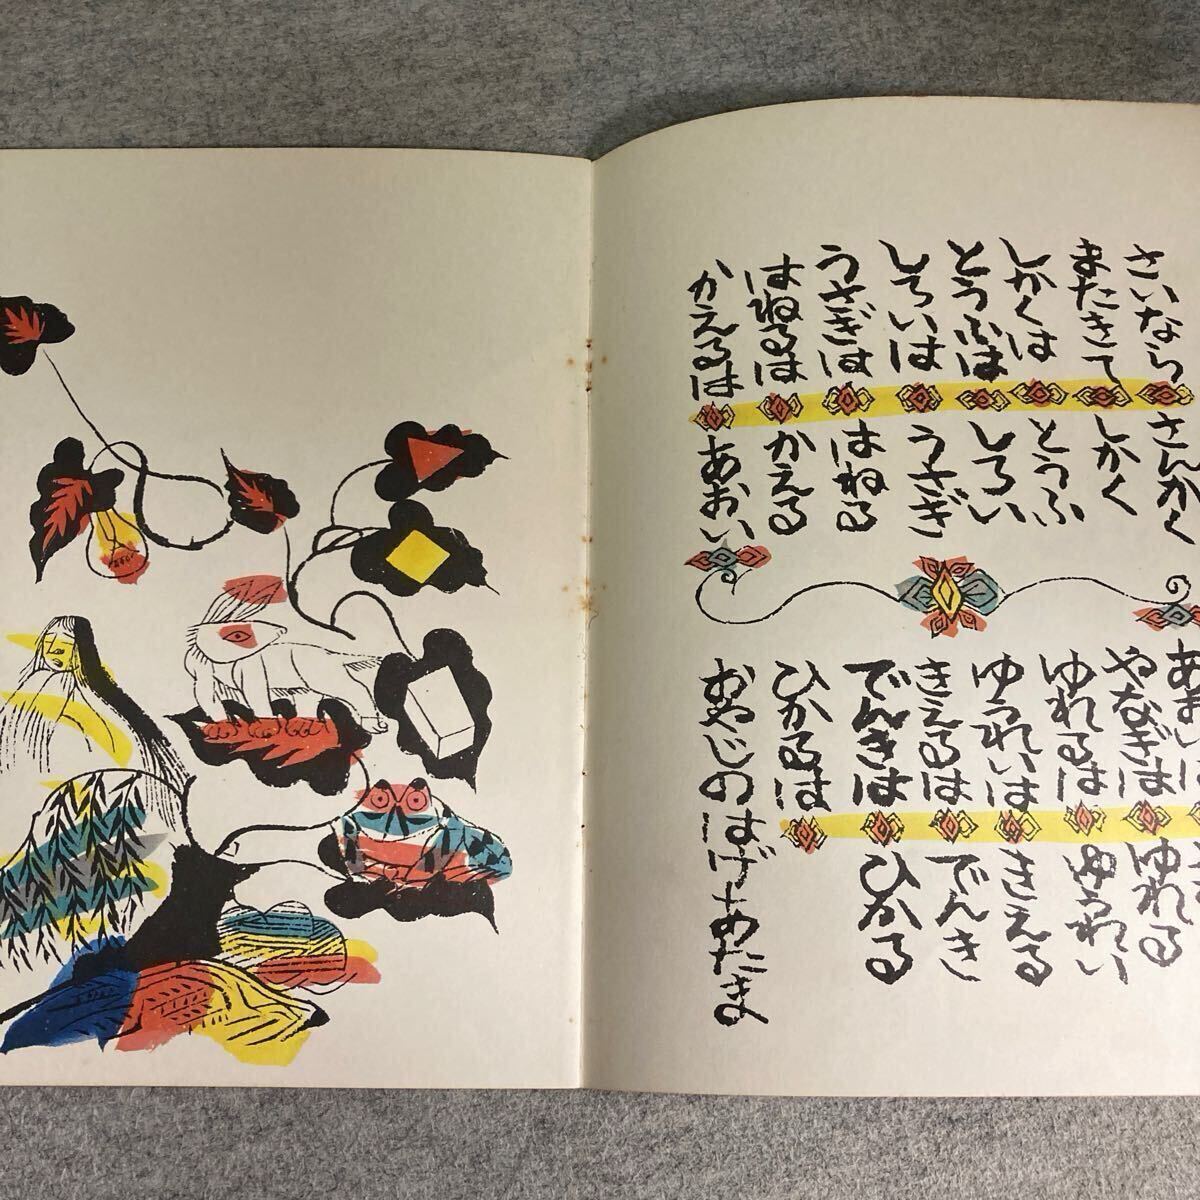 さいなら さんかく
またきて しかく
しかくは とうふ
とうふは しろい
しろいは うさぎ
うさぎは はねる
はねるは かえる
かえるは あおい
あおいは
やなぎは ゆれる
ゆれるは ゆうれい
ゆうれいは きえる
きえるは でんき
でんきは ひかる
ひかるは
おやじのはげあたま